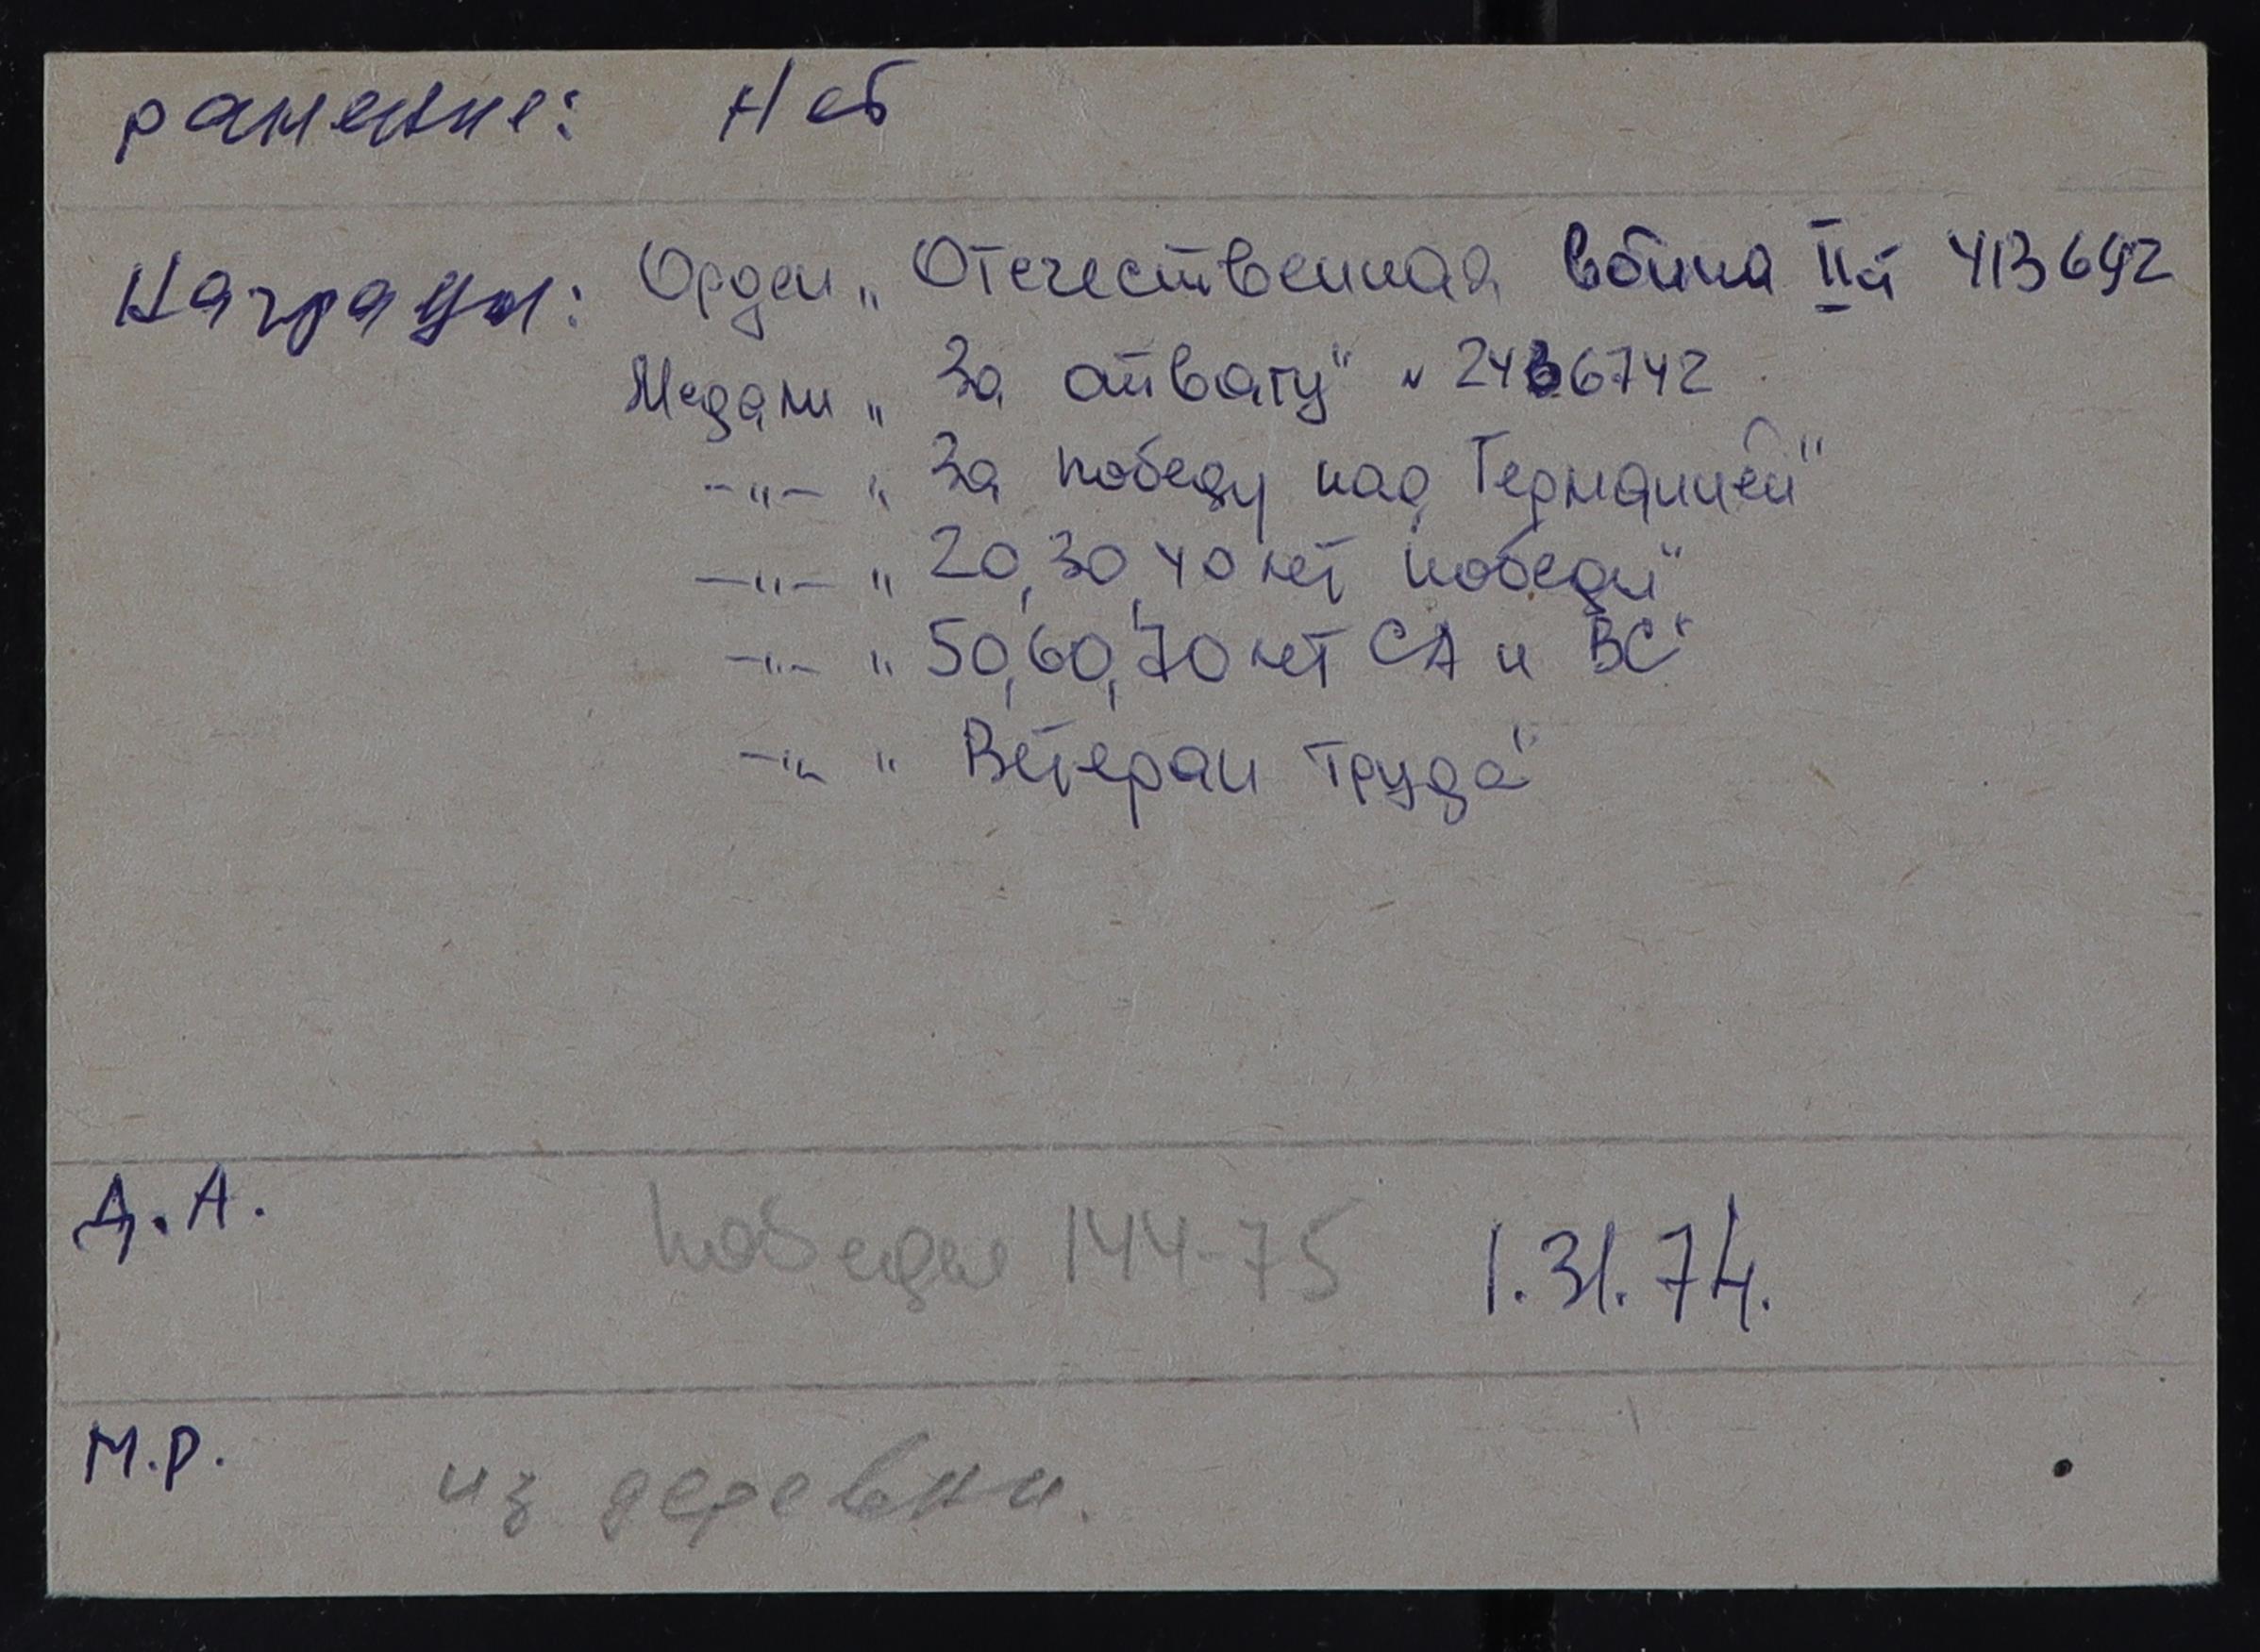 ранение: Нет
Награды: Орден „ Отечественная война II й 413692
Медали „ За отвагу" N 2436742
-"- „ За победу над Германией"
-"- „ 20, 30, 40 лет победы"
-"- „ 50, 60, 70 лет СА и ВС"
-"- „ Ветеран труда"
Д.А. победы 144-75 1.31.74.
М.Р. из деревни.